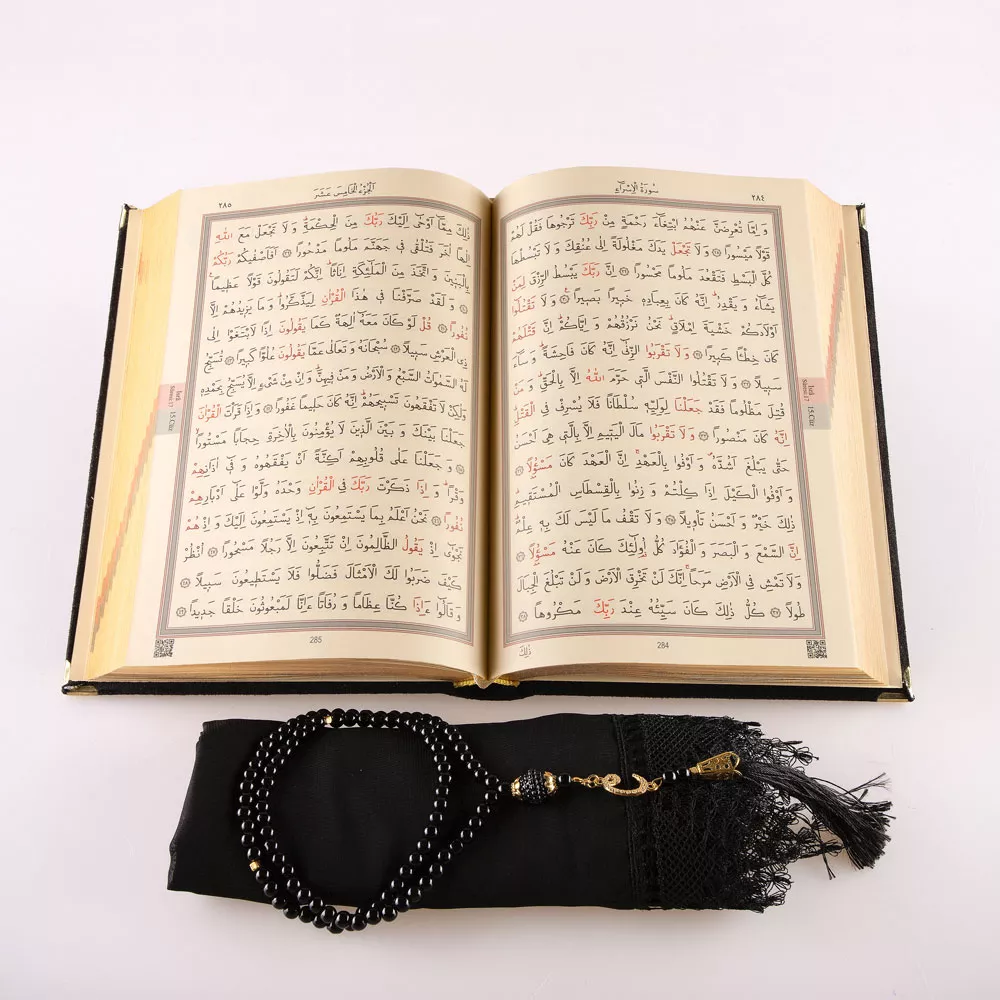 سُورَةُ الْاِسْرَاۤءِ
٢٨٤
وَ اِمَّا تُعْرِضَنَّ عَنْهُمُ ابْتِغَٓاءَ رَحْمَةٍ مِنْ رَبِّكَ تَرْجُوهَا فَقُلْ لَهُمْ
قَوْلاً مَيْسُوراً ﴿٢٨﴾ وَ لَا تَجْعَلْ يَدَكَ مَغْلُولَةً اِلٰى عُنُقِكَ وَ لَا تَبْسُطْهَا
كُلَّ الْبَسْطِ فَتَقْعُدَ مَلُوماً مَحْسُوراً ﴿٢٩﴾ اِنَّ رَبَّكَ يَبْسُطُ الرِّزْقَ لِمَنْ
يَشَٓاءُ وَ يَقْدِرُ اِنَّهُ كَانَ بِعِبَادِهٖ خَبٖيراً بَصٖيراً ﴿٣٠﴾ وَ لَا تَقْتُلُٓوا
اَوْلَادَكُمْ خَشْيَةَ اِمْلَاقٍ نَحْنُ نَرْزُقُهُمْ وَ اِيَّاكُمْ اِنَّ قَتْلَهُمْ
كَانَ خِطْـٔاً كَبٖيراً ﴿٣١﴾ وَ لَا تَقْرَبُوا الزِّنٰٓى اِنَّهُ كَانَ فَاحِشَةً وَ سَٓاءَ
سَبٖيلاً ﴿٣٢﴾ وَ لَا تَقْتُلُوا النَّفْسَ الَّتٖى حَرَّمَ اللّٰهُ اِلَّا بِالْحَقِّ وَ مَنْ
قُتِلَ مَظْلُوماً فَقَدْ جَعَلْنَا لِوَلِيِّهٖ سُلْطَاناً فَلَا يُسْرِفْ فِى الْقَتْلِ
اِنَّهُ كَانَ مَنْصُوراً ﴿٣٣﴾ وَ لَا تَقْرَبُوا مَالَ الْيَتٖيمِ اِلَّا بِالَّتٖى هِىَ اَحْسَنُ
حَتّٰى يَبْلُغَ اَشُدَّهُ وَ اَوْفُوا بِالْعَهْدِ اِنَّ الْعَهْدَ كَانَ مَسْؤُلاً ﴿٣٤﴾
وَ اَوْفُوا الْكَيْلَ اِذَا كِلْتُمْ وَ زِنُوا بِالْقِسْطَاسِ الْمُسْتَقٖيمِ
ذٰلِكَ خَيْرٌ وَ اَحْسَنُ تَأْوٖيلاً ﴿٣٥﴾ وَ لَا تَقْفُ مَا لَيْسَ لَكَ بِهٖ عِلْمٌ
اِنَّ السَّمْعَ وَ الْبَصَرَ وَ الْفُؤَادَ كُلُّ اُو۬لٰٓئِكَ كَانَ عَنْهُ مَسْؤُلاً ﴿٣٦﴾
وَ لَا تَمْشِ فِى الْاَرْضِ مَرَحاً اِنَّكَ لَنْ تَخْرِقَ الْاَرْضَ وَ لَنْ تَبْلُغَ الْجِبَالَ
طُولاً ﴿٣٧﴾ كُلُّ ذٰلِكَ كَانَ سَيِّئُهُ عِنْدَ رَبِّكَ مَكْرُوهاً ﴿٣٨﴾
284
ذٰلِكَ
İsrâ
Sûresi 17
15.Cüz
اَلْجُزْءُ الْخَامِسَ عَشَرَ
٢٨٥
ذٰلِكَ مِمَّٓا اَوْحٰٓى اِلَيْكَ رَبُّكَ مِنَ الْحِكْمَةِ وَ لَا تَجْعَلْ مَعَ اللّٰهِ
اِلٰهاً اٰخَرَ فَتُلْقٰى فٖى جَهَنَّمَ مَلُوماً مَدْحُوراً ﴿٣٩﴾ اَفَاَصْفٰيكُمْ رَبُّكُمْ
بِالْبَنٖينَ وَ اتَّخَذَ مِنَ الْمَلٰٓئِكَةِ اِنَاثاً اِنَّكُمْ لَتَقُولُونَ قَوْلاً عَظٖيماً
﴿٤٠﴾ وَ لَقَدْ صَرَّفْنَا فٖى هٰذَا الْقُرْاٰنِ لِيَذَّكَّرُوا وَ مَا يَزٖيدُهُمْ اِلَّا
نُفُوراً ﴿٤١﴾ قُلْ لَوْ كَانَ مَعَهُٓ اٰلِهَةٌ كَمَا يَقُولُونَ اِذاً لَابْتَغَوْا اِلٰى
ذِى الْعَرْشِ سَبٖيلاً ﴿٤٢﴾ سُبْحَانَهُ وَ تَعَالٰى عَمَّا يَقُولُونَ عُلُوًّا كَبٖيراً ﴿٤٣﴾ تُسَبِّحُ
لَهُ السَّمٰوَاتُ السَّبْعُ وَ الْاَرْضُ وَ مَنْ فٖيهِنَّ وَ اِنْ مِنْ شَىْءٍ اِلَّا يُسَبِّحُ بِحَمْدِهٖ
وَلٰكِنْ لَا تَفْقَهُونَ تَسْبٖيحَهُمْ اِنَّهُ كَانَ حَلٖيماً غَفُوراً ﴿٤٤﴾ وَ اِذَا قَرَأْتَ الْقُرْاٰنَ
جَعَلْنَا بَيْنَكَ وَ بَيْنَ الَّذٖينَ لَا يُؤْمِنُونَ بِالْاٰخِرَةِ حِجَاباً مَسْتُوراً
﴿٤٥﴾ وَ جَعَلْنَا عَلٰى قُلُوبِهِمْ اَكِنَّةً اَنْ يَفْقَهُوهُ وَ فٖٓى اٰذَانِهِمْ
وَقْراً وَ اِذَا ذَكَرْتَ رَبَّكَ فِى الْقُرْاٰنِ وَحْدَهُ وَلَّوْا عَلٰٓى اَدْبَارِهِمْ
نُفُوراً ﴿٤٦﴾ نَحْنُ اَعْلَمُ بِمَا يَسْتَمِعُونَ بِهٖٓ اِذْ يَسْتَمِعُونَ اِلَيْكَ وَ اِذْ هُمْ
نَجْوٰٓى اِذْ يَقُولُ الظَّالِمُونَ اِنْ تَتَّبِعُونَ اِلَّا رَجُلاً مَسْحُوراً ﴿٤٧﴾ اُنْظُرْ
كَيْفَ ضَرَبُوا لَكَ الْاَمْثَالَ فَضَلُّوا فَلَا يَسْتَطٖيعُونَ سَبٖيلاً ﴿٤٨﴾
وَ قَالُٓوا ءَاِذَا كُنَّا عِظَاماً وَ رُفَاتاً ءَاِنَّا لَمَبْعُوثُونَ خَلْقاً جَدٖيداً ﴿٤٩﴾
285
İsrâ
Sûresi 17
15.Cüz